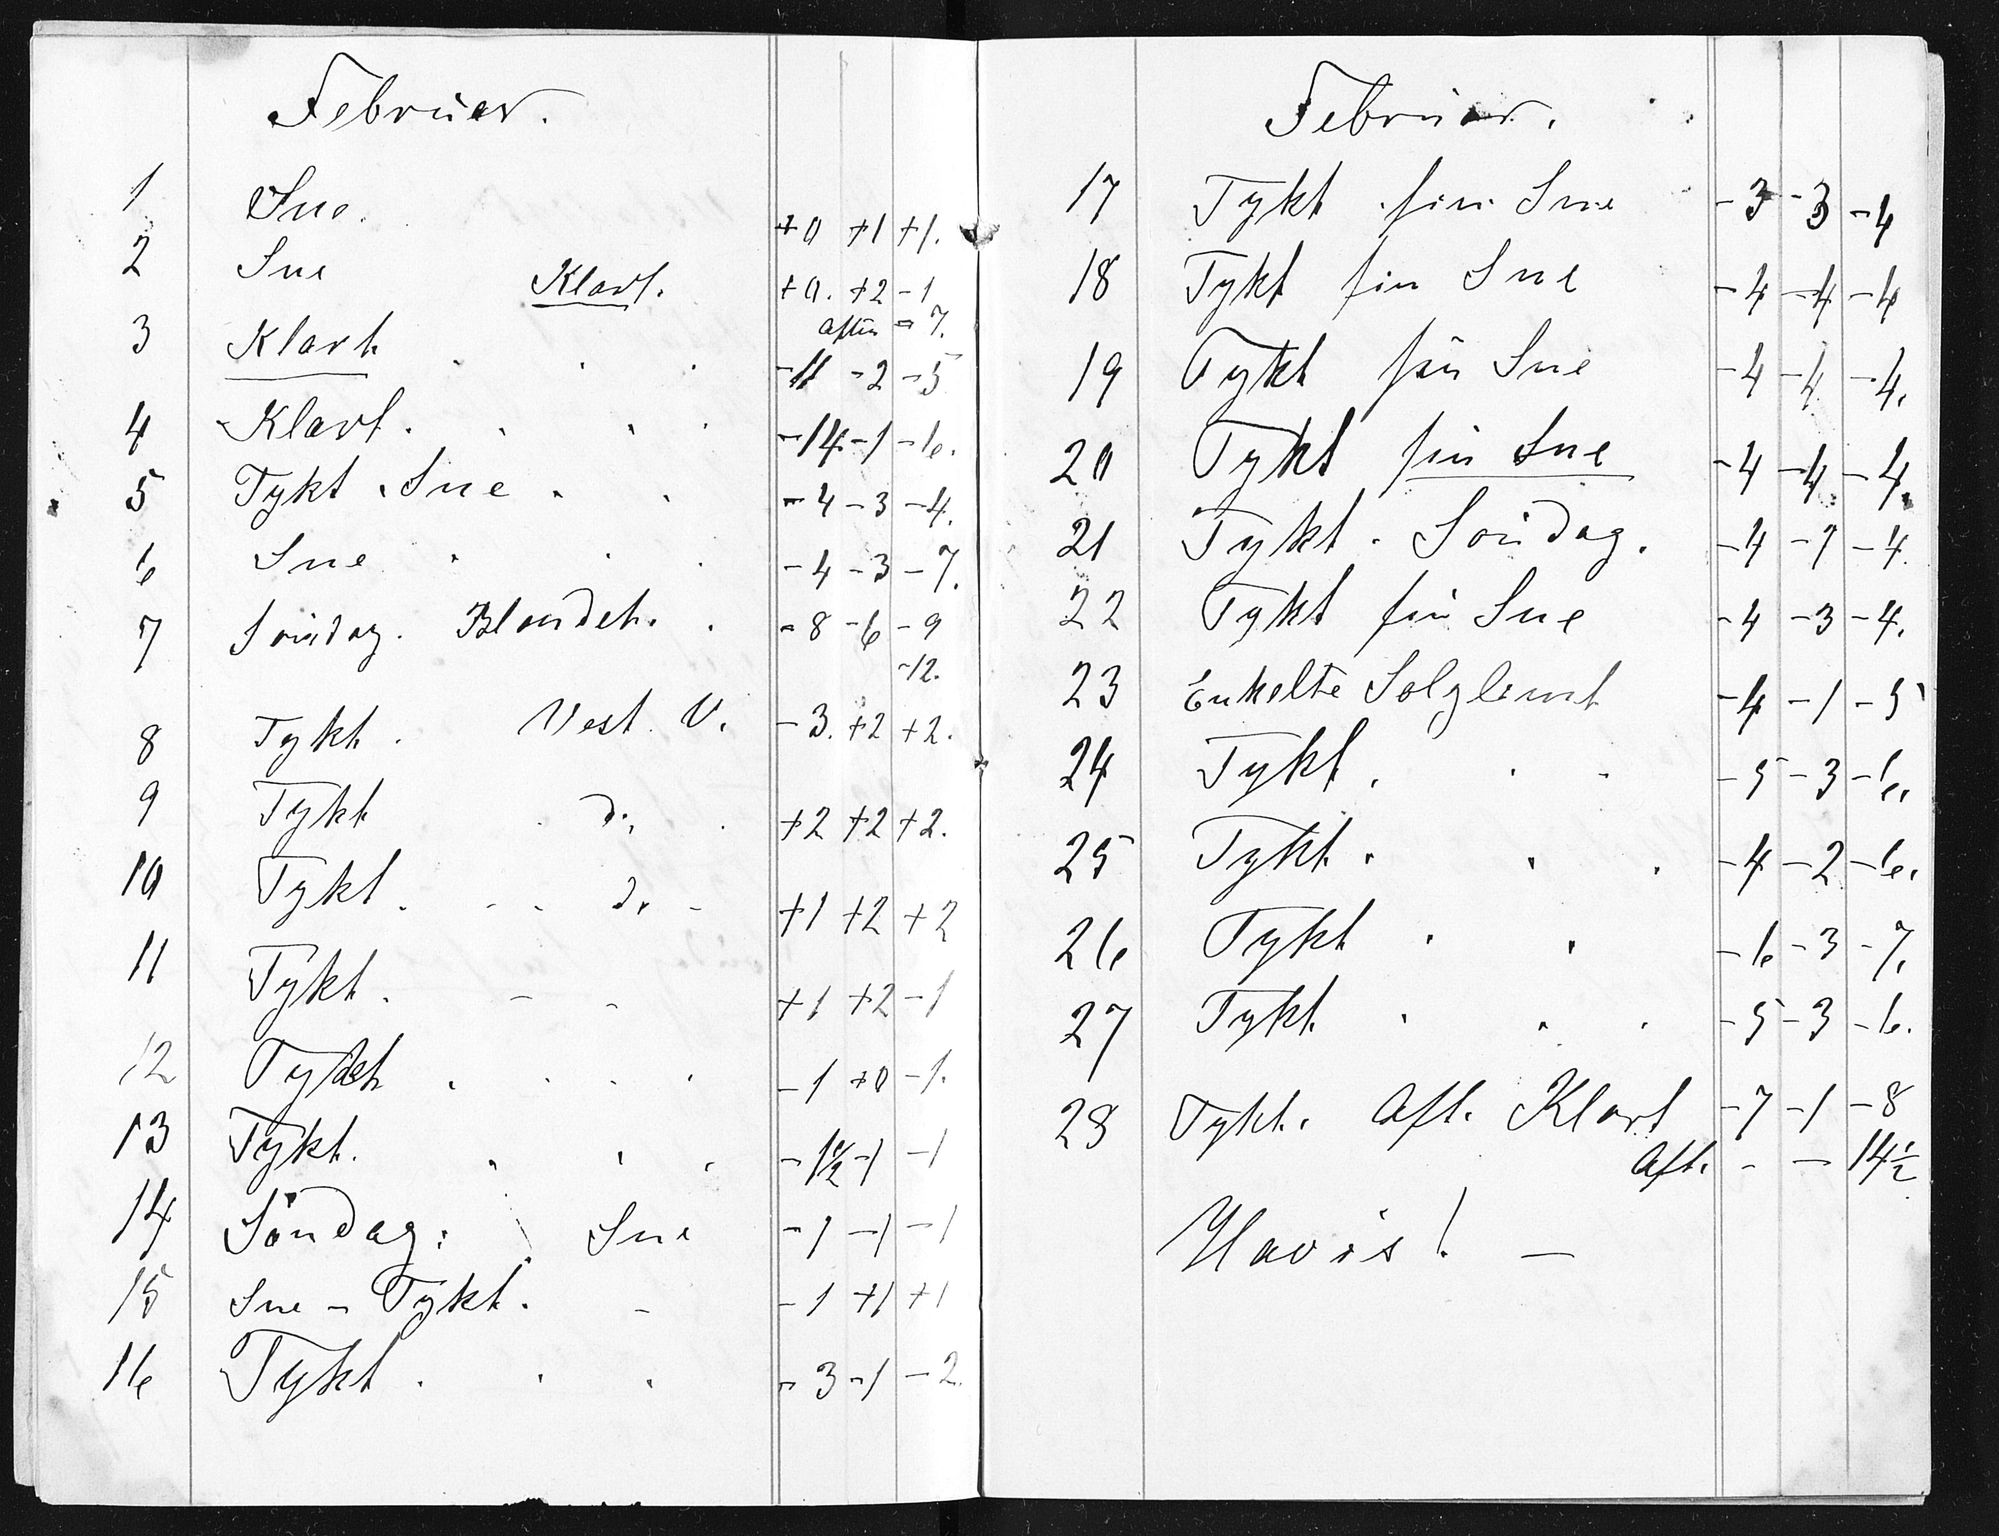 Februar.
1 Sne. +0 +1 +1.
2 Sne Klart. +0. +2 -1
Aften - 7.
3 Klart. -11 -2 -5
4 Klart. -14 -1 -6.
5 Tykt. Sne -4 -3 -4.
6 Sne -4 -3 -7.
7 Söndag. Blandet. -8 -6 -9
-12.
8 Tykt. Vest. V. -3. +2 +2.
9 Tykt do. +2 +2 +2.
10 Tykt. do. +1 +2 +2
11 Tykt. +1 +2 -1
12 Tykt -1 +0 -1.
13 Tykt. -1½ -1 -1
14 Söndag: Sne -1 -1 -1
15 Sne - Tykt. -1 +1 +1
16 Tykt. -3 -1 -2.
Februar.
17 Tykt fin Sne -3 -3 -4
18 Tykt fin Sne -4 -4 -4
19 Tykt fin Sne -4 -4 -4.
20 Tykt fin Sne -4 -4 -4.
21 Tykt. Söndag. -4 -7 -4.
22 Tykt fin Sne -4 -3 -4.
23 Enkelte Solglimt -4 -1 -5
24 Tykt. -5 -3 -6.
25 Tykt. -4 -2 -6.
26 Tykt -6 -3 -7.
27 Tykt. -5 -3 -6.
28 Tykt. Aft. Klart -7 -1 -8
Aft. - - 14½
Havis! -